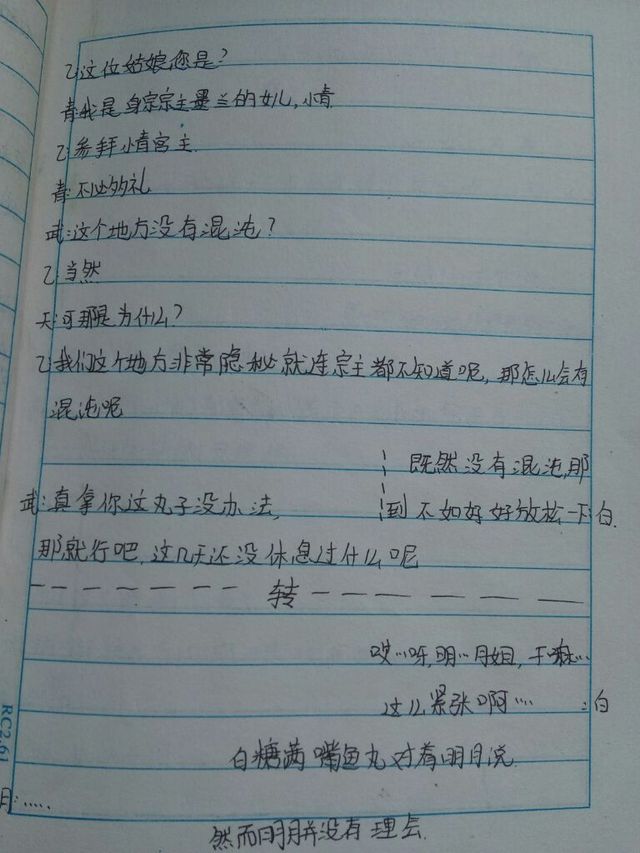 乙:这位姑娘您是?
青:我是身宗宗主墨兰的女儿,小青
乙:参拜小青宫主.
青:不必多礼
武:这个地方没有混沌?
乙:当然
天:可那是为什么?
乙:我们这个地方非常隐秘就连宗主都不知道呢,那怎么会有
混沌呢
既然没有混沌,那
到不如好好放松一下:白
武:真拿你这丸子没办法,
那就行吧,这几天还没休息过什么呢
转
哎…呀,明…月姐,干嘛…
这么紧张啊…:白
白糖茜嘴鱼丸对着明月说
月:.....
然而明月并没有理会.
RC2.61